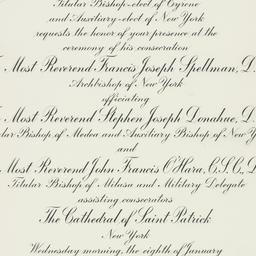 Titular Bishop-elect of Cyrene
and Auxiliary-elect of New York
requests the honor of your presence at the
ceremony of his consecration
Most Reverend Francis Joseph Spellman, D.
Archbishop of New York
officiating
Most Reverend Stephen Joseph Donahue, D.
lar Bishop of Medea and Auxiliary Bishop of New Y
and
Most Reverend John Francis O'Hara, C.S.C., D
Titular Bishop of Milasa and Military Delegate
assisting consecrators
The Cathedral of Saint Patrick
New York
Wednesday morning, the eighth of January